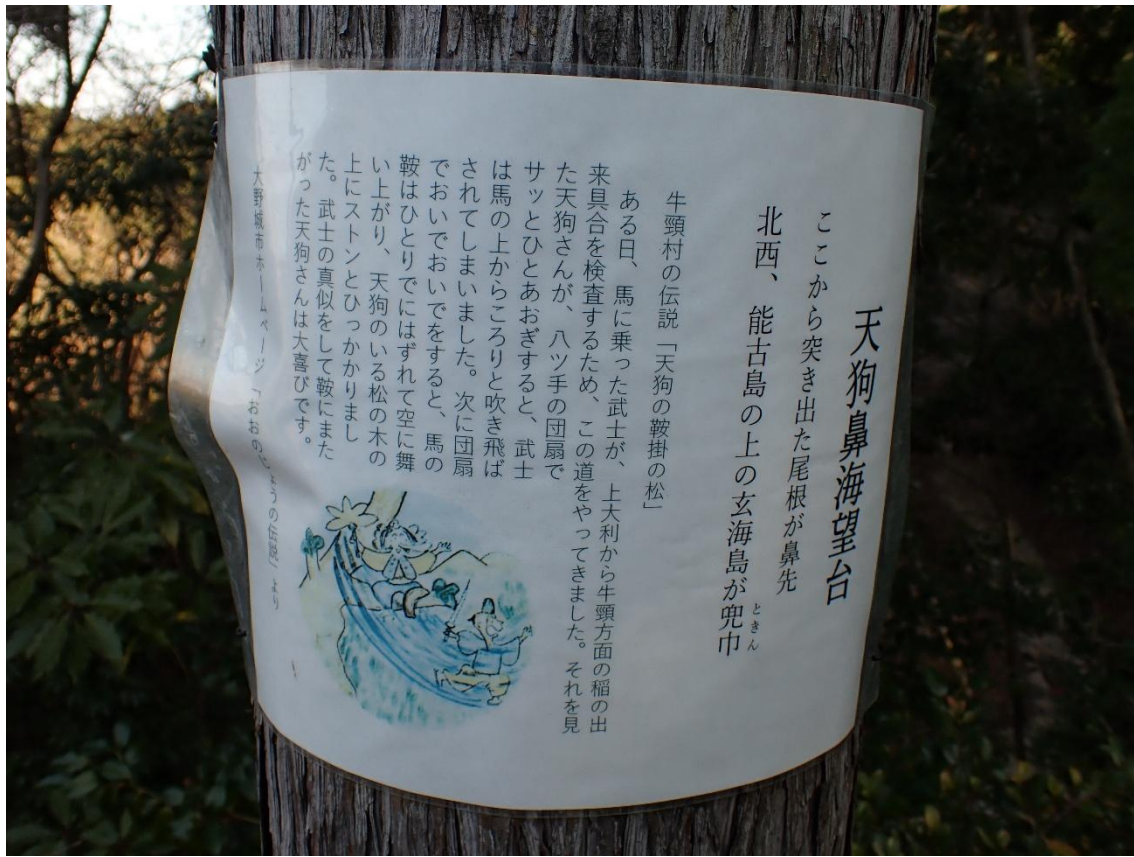 天狗鼻海望台
ここから突き出た尾根が鼻先
北西、能古島の上の玄海島が兜巾
ときん
牛頸村の伝説「天狗の鞍掛の松」
ある日、馬に乗った武士が、上大利から牛頸方面の稲の出
来具合を検査するため、この道をやってきました。それを見
た天狗さんが、八ツ手の団扇で
サッとひとあおぎすると、武士
は馬の上からころりと吹き飛ば
されてしまいました。次に団扇
でおいでおいでをすると、馬の
鞍はひとりでにはずれて空に舞
い上がり、天狗のいる松の木の
上にストンとひっかかりまし
た。武士の真似をして鞍にまた
がった天狗さんは大喜びです。
大野城市ホームページ「おおのじょうの伝説」より